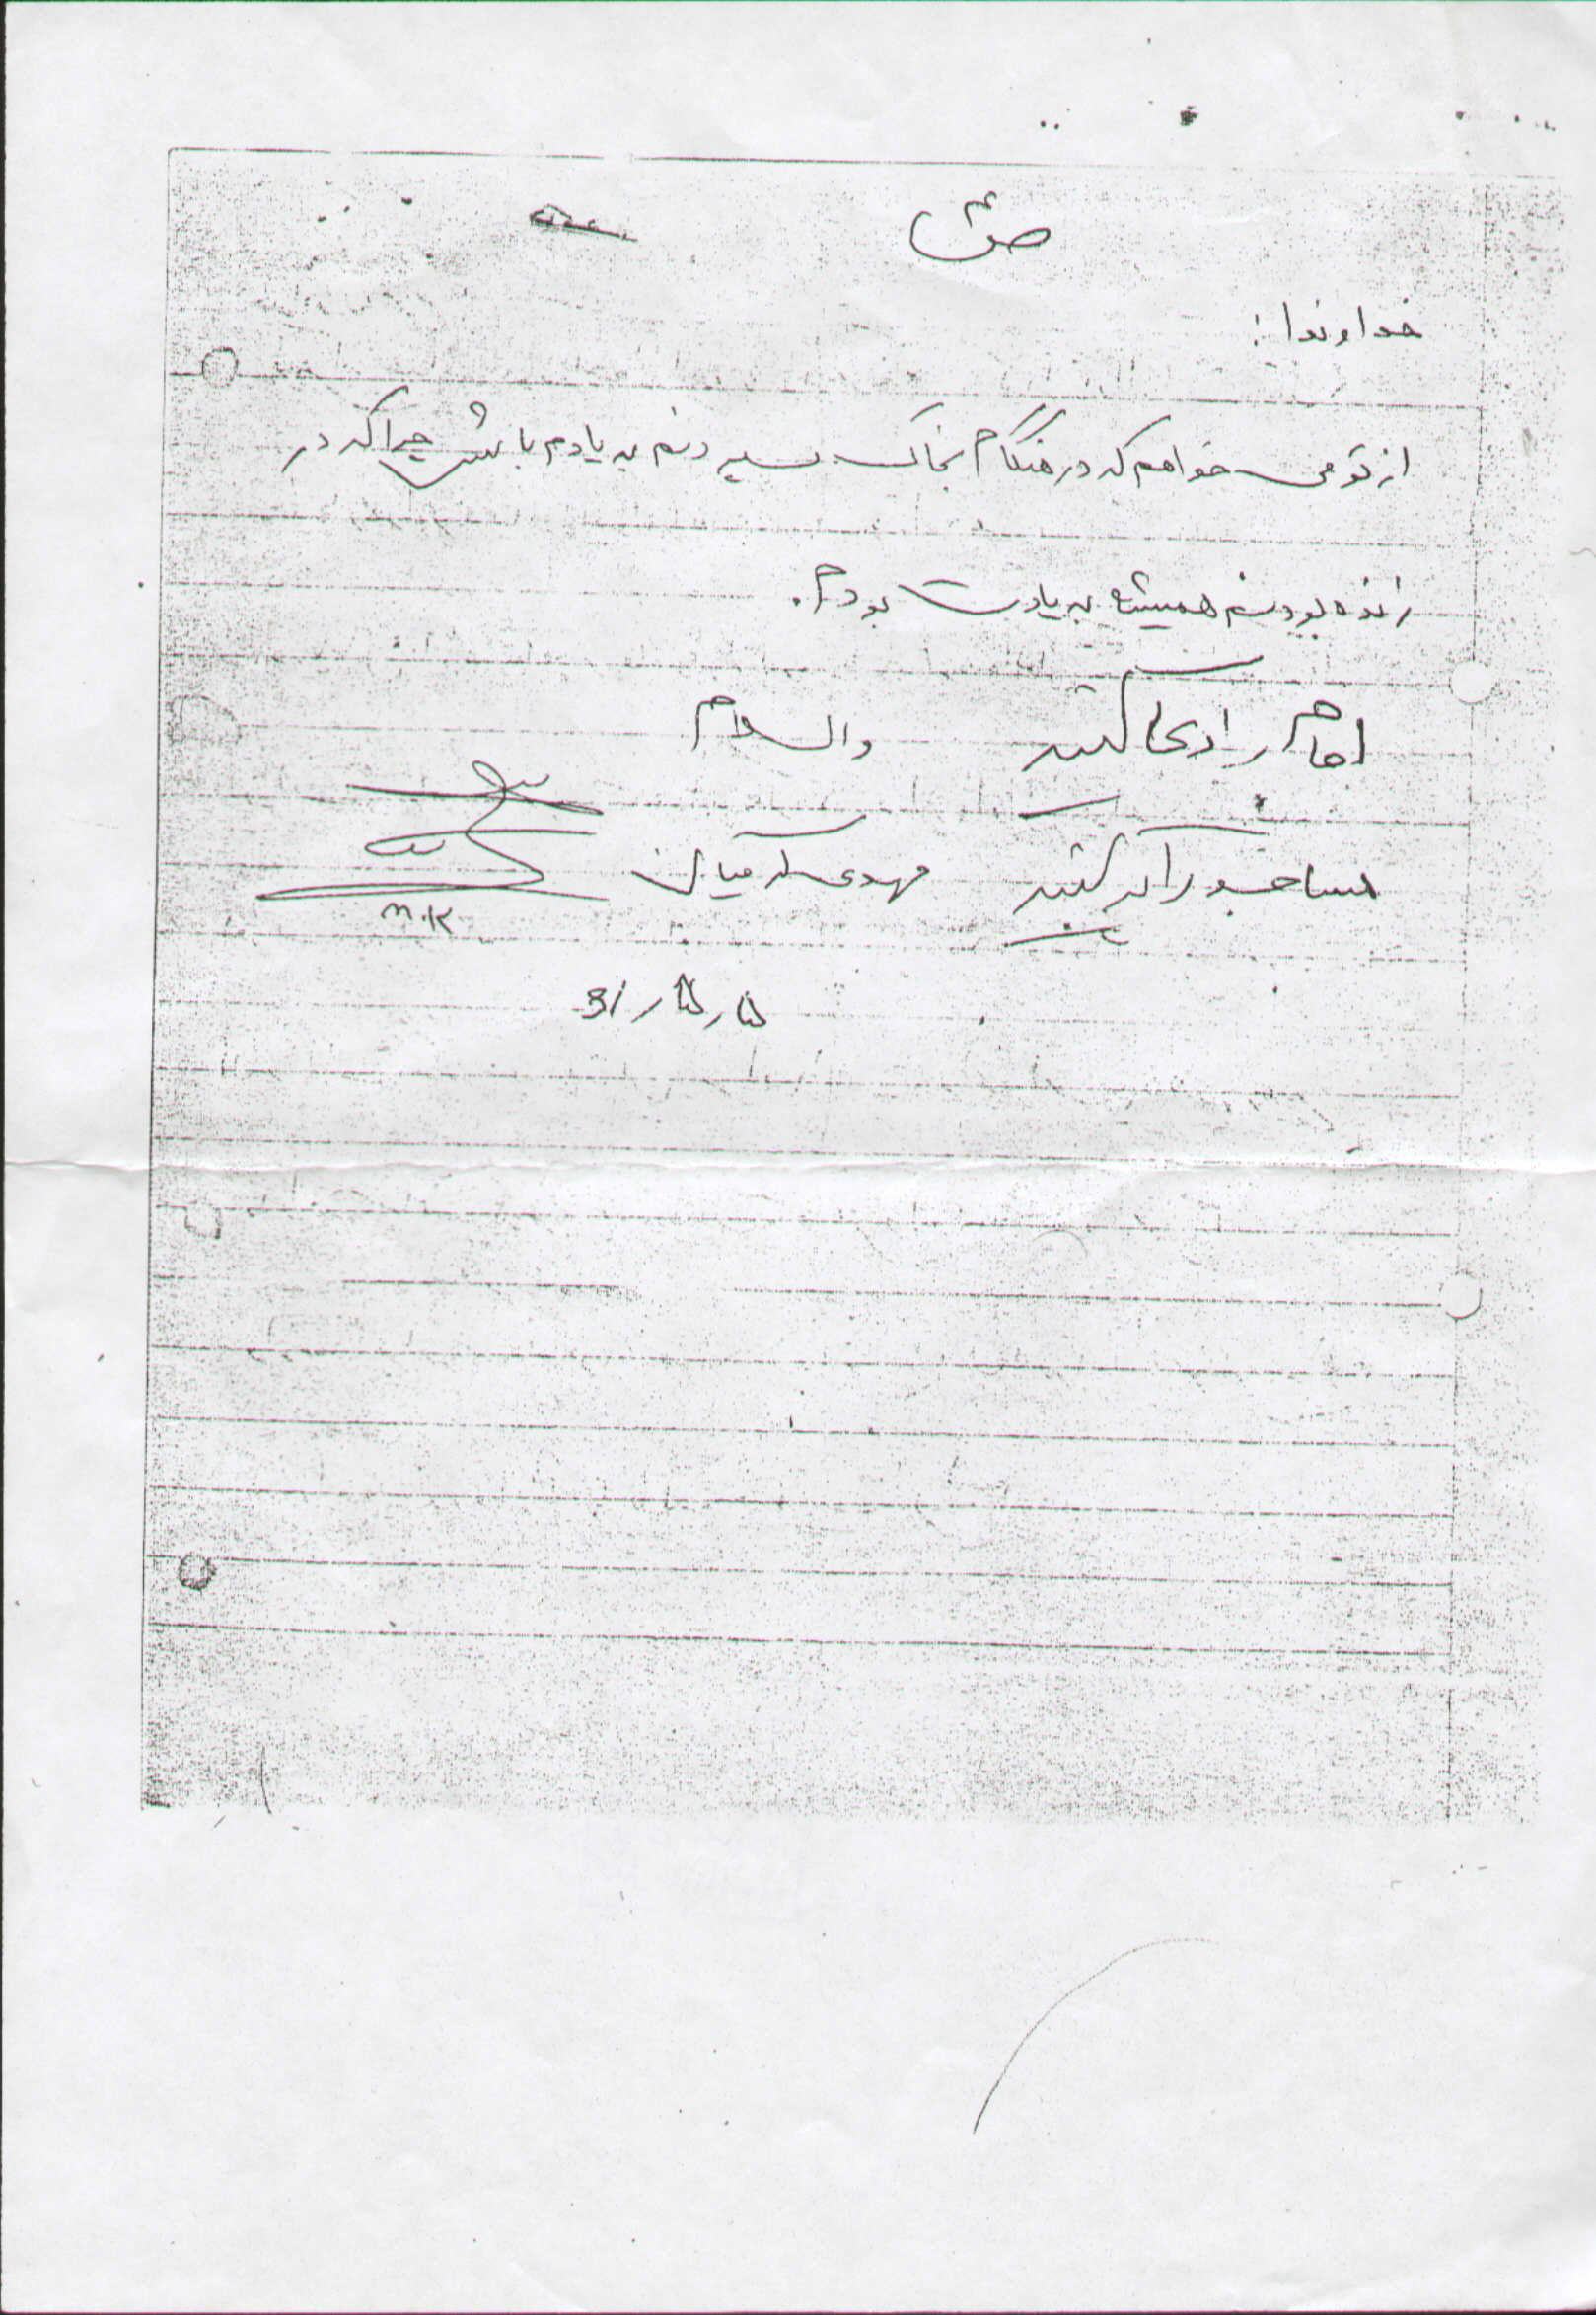 خداوندا :
از تو می خواهم که در هنگام بخاک سپردنم به یادم باش چرا که در
زنده بودنم همیشه به یادت بودم.
امام را دعا کنید والسلام
مساجد را پر کنید مهدی
M.K